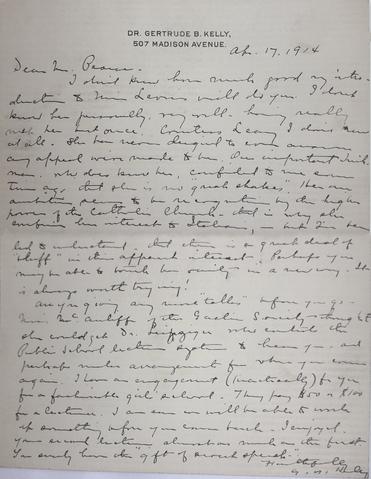 DR. GERTRUDE B. KELLY,
507 MADISON AVENUE.
Ap. 17, 1914
Dear Mr. Pearse.
I don't know how much good my intro-
duction to Miss will do you. I don't
know her personally very well. having really
met her but once. Countess Leary I don't know
at all. She has never deigned to even answer
any appeal ever made to her. One important Irish
man, who does know her, confided to me some
time ago, that she is "no great shakes". Her
ambition seems to be recognition by the higher
powers of the Catholic Church - that is why she
confines her interest to Italians, - but I'm
led to understand that there is a great deal of
"bluff" in this apparent interest. Perhaps you
may be able to touch her vanity in a new way. It
is always worth trying!
Are you giving any more "talks" before you go -
Miss McAuliffe of the Gaelic Society thought
she could get Dr. Leipziger who controls the
Public School lecture system to hear you and
perhaps make arrangements for when you come
again. I have an engagement (practically) for you
for a fashionable girls' school. They pay $50 or $100
for a lecture. I am sure we will be able to work
up something before you come back. I enjoyed
your second lecture almost as much as the first
You surely have the "gift of ready speech."
Faithfully
G. B. Kelly